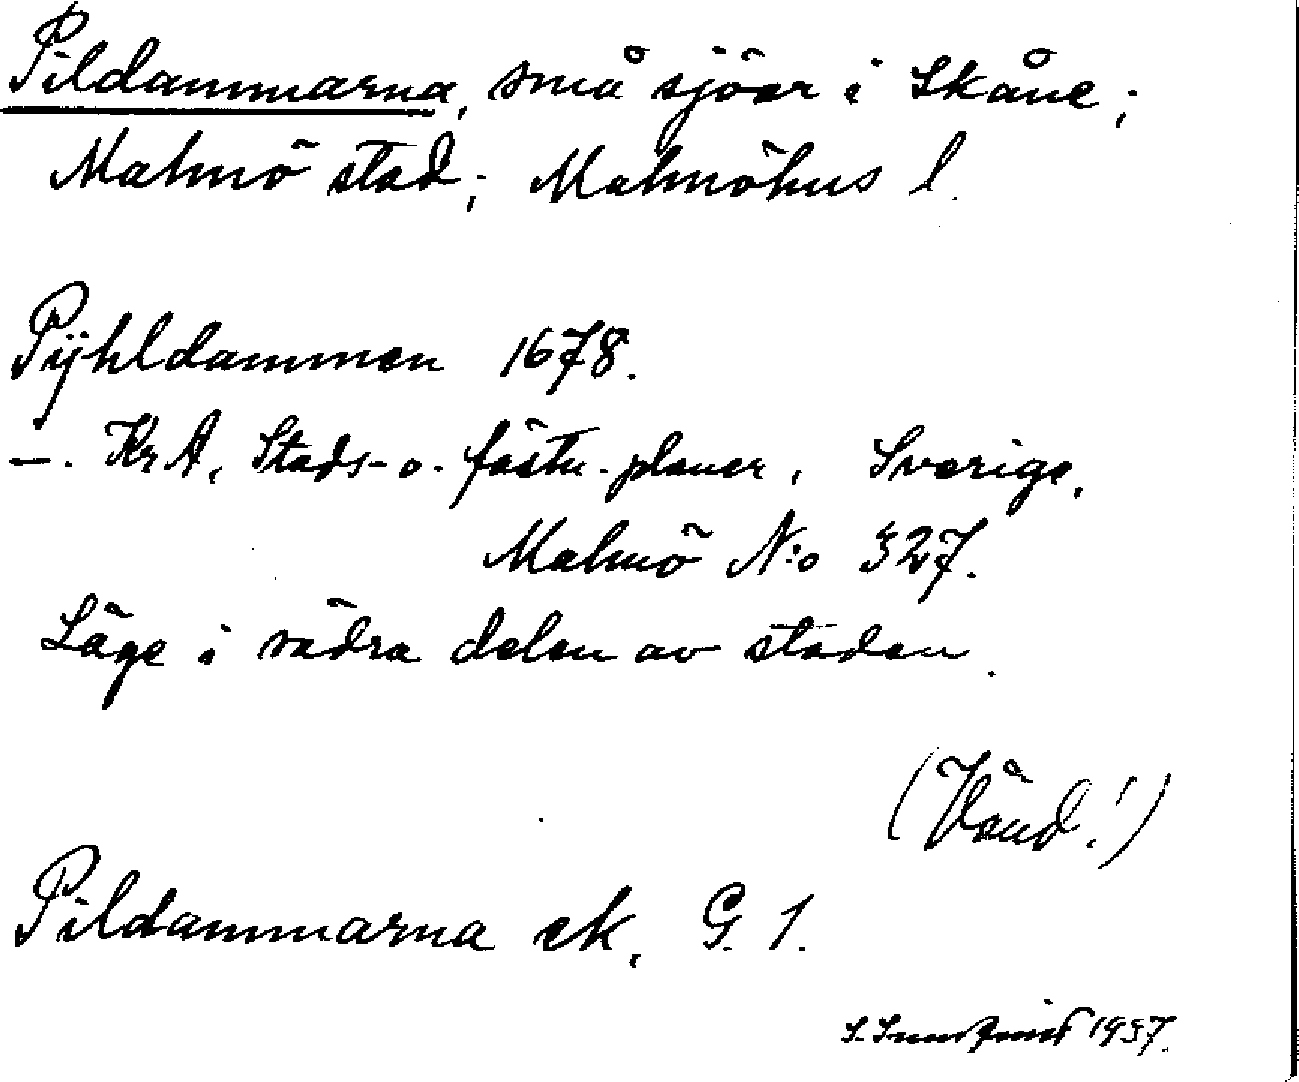 Pildammarna, små sjöar i Skåne;
Malmö stad; Malmöhus l.
Pÿhldammen 1678.
—. KrA, Stads- o. fästn. planer, Sverige,
Malmö N:o 327.
Läge i södra delen av staden.
(Vänd!)
Pildammarna ek, G. 1.
1937.